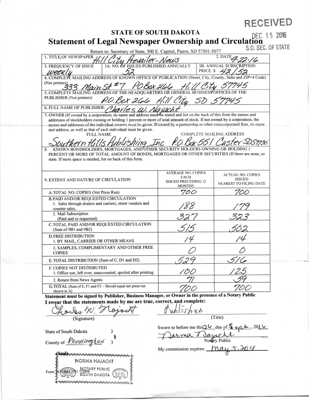 RECEIVED
DEC 15 2016
S.D. SEC. OF STATE
STATE OF SOUTH DAKOTA
Statement of Legal Newspaper Ownership and Circulation
Return to: Secretary of State, 500 E. Capitol, Pierre, SD 57501-5077
1. TITLE OF NEWSPAPER Hill City Prevailer-News
2. DATE 9-22-16
3. FREQUENCY OF ISSUE weekly
3A. NO. OF ISSUES PUBLISHED ANNUALLY 52
3B. ANNUAL SUBSCRIPTION PRICE $ 42/52
4. COMPLETE MAILING ADDRESS OF KNOWN OFFICE OF PUBLICATION (Street, City, County, State and ZIP+4 Code)
(Not printers) 333 Main St #7 PO Box 266 Hill City 57745
5. COMPLETE MAILING ADDRESS OF THE HEADQUARTERS OF GENERAL BUSINESS OFFICES OF THE
PUBLISHER (Not printers) PO Box 266 Hill City SD 57745
6. FULL NAME OF PUBLISHER Charles W. Najacht
7. OWNER (If owned by a corporation, its name and address must be stated and also
addresses of stockholders owning or holding 1 percent or more of total amount of stock. If not owned by a corporation, the
names and addresses of the individual owners must be given. If owned by a partnership or other unincorporated firm, its name
and address, as well as that of each individual must be given.
FULL NAME COMPLETE MAILING ADDRESS
Southern Hills Publishing, Inc PO Box 551 Custer SD 57730
8. KNOWN BONDHOLDERS, MORTGAGEES, AND OTHER SECURITY HOLDERS OWNING OR HOLDING 1
PERCENT OR MORE OF TOTAL AMOUNT OF BONDS, MORTGAGES OR OTHER SECURITIES (If there are none, so
state. If more space is needed, list on back of this form.
9. EXTENT AND NATURE OF CIRCULATION
AVERAGE NO. COPIES EACH ISSUED PRECEDING 12 MONTHS
ACTUAL NO. COPIES ISSUED NEAREST TO FILING DATE
A. TOTAL NO. COPIES (Net Press Run) 700 700
B. PAID AND/OR REQUESTED CIRCULATION
1. Sales through dealers and carriers, street vendors and
counter sales. 188 179
2. Mail Subscription
(Paid and/or requested) 327 323
C. TOTAL PAID AND/OR REQUESTED CIRCULATION
(Sum of 9B1 and 9B2) 515 502
D. FREE DISTRIBUTION
1. BY MAIL, CARRIER OR OTHER MEANS 14 14
2. SAMPLES, COMPLIMENTARY AND OTHER FREE
COPIES 0 0
E. TOTAL DISTRIBUTION (Sum of C, D1 and D2) 529 516
F. COPIES NOT DISTRIBUTED
1. Office use, left over, unaccounted, spoiled after printing 100 125
2. Return from News Agents 71 59
G. TOTAL (Sum of E, F1 and F2 - Should equal net press run
shown in A) 700 700
Statement must be signed by Publisher, Business Manager, or Owner in the presence of a Notary Public
I swear that the statements made by me are true, correct, and complete:
Charles W. Najacht Publisher
(Signature) (Title)
State of South Dakota )
County of Pennington )
Sworn to before me this 26 day of Sept, 2016
Norma Najacht
Notary Public
My commission expires: May 5, 2018
NORMA NAJACHT
NOTARY PUBLIC
SOUTH DAKOTA
SEAL